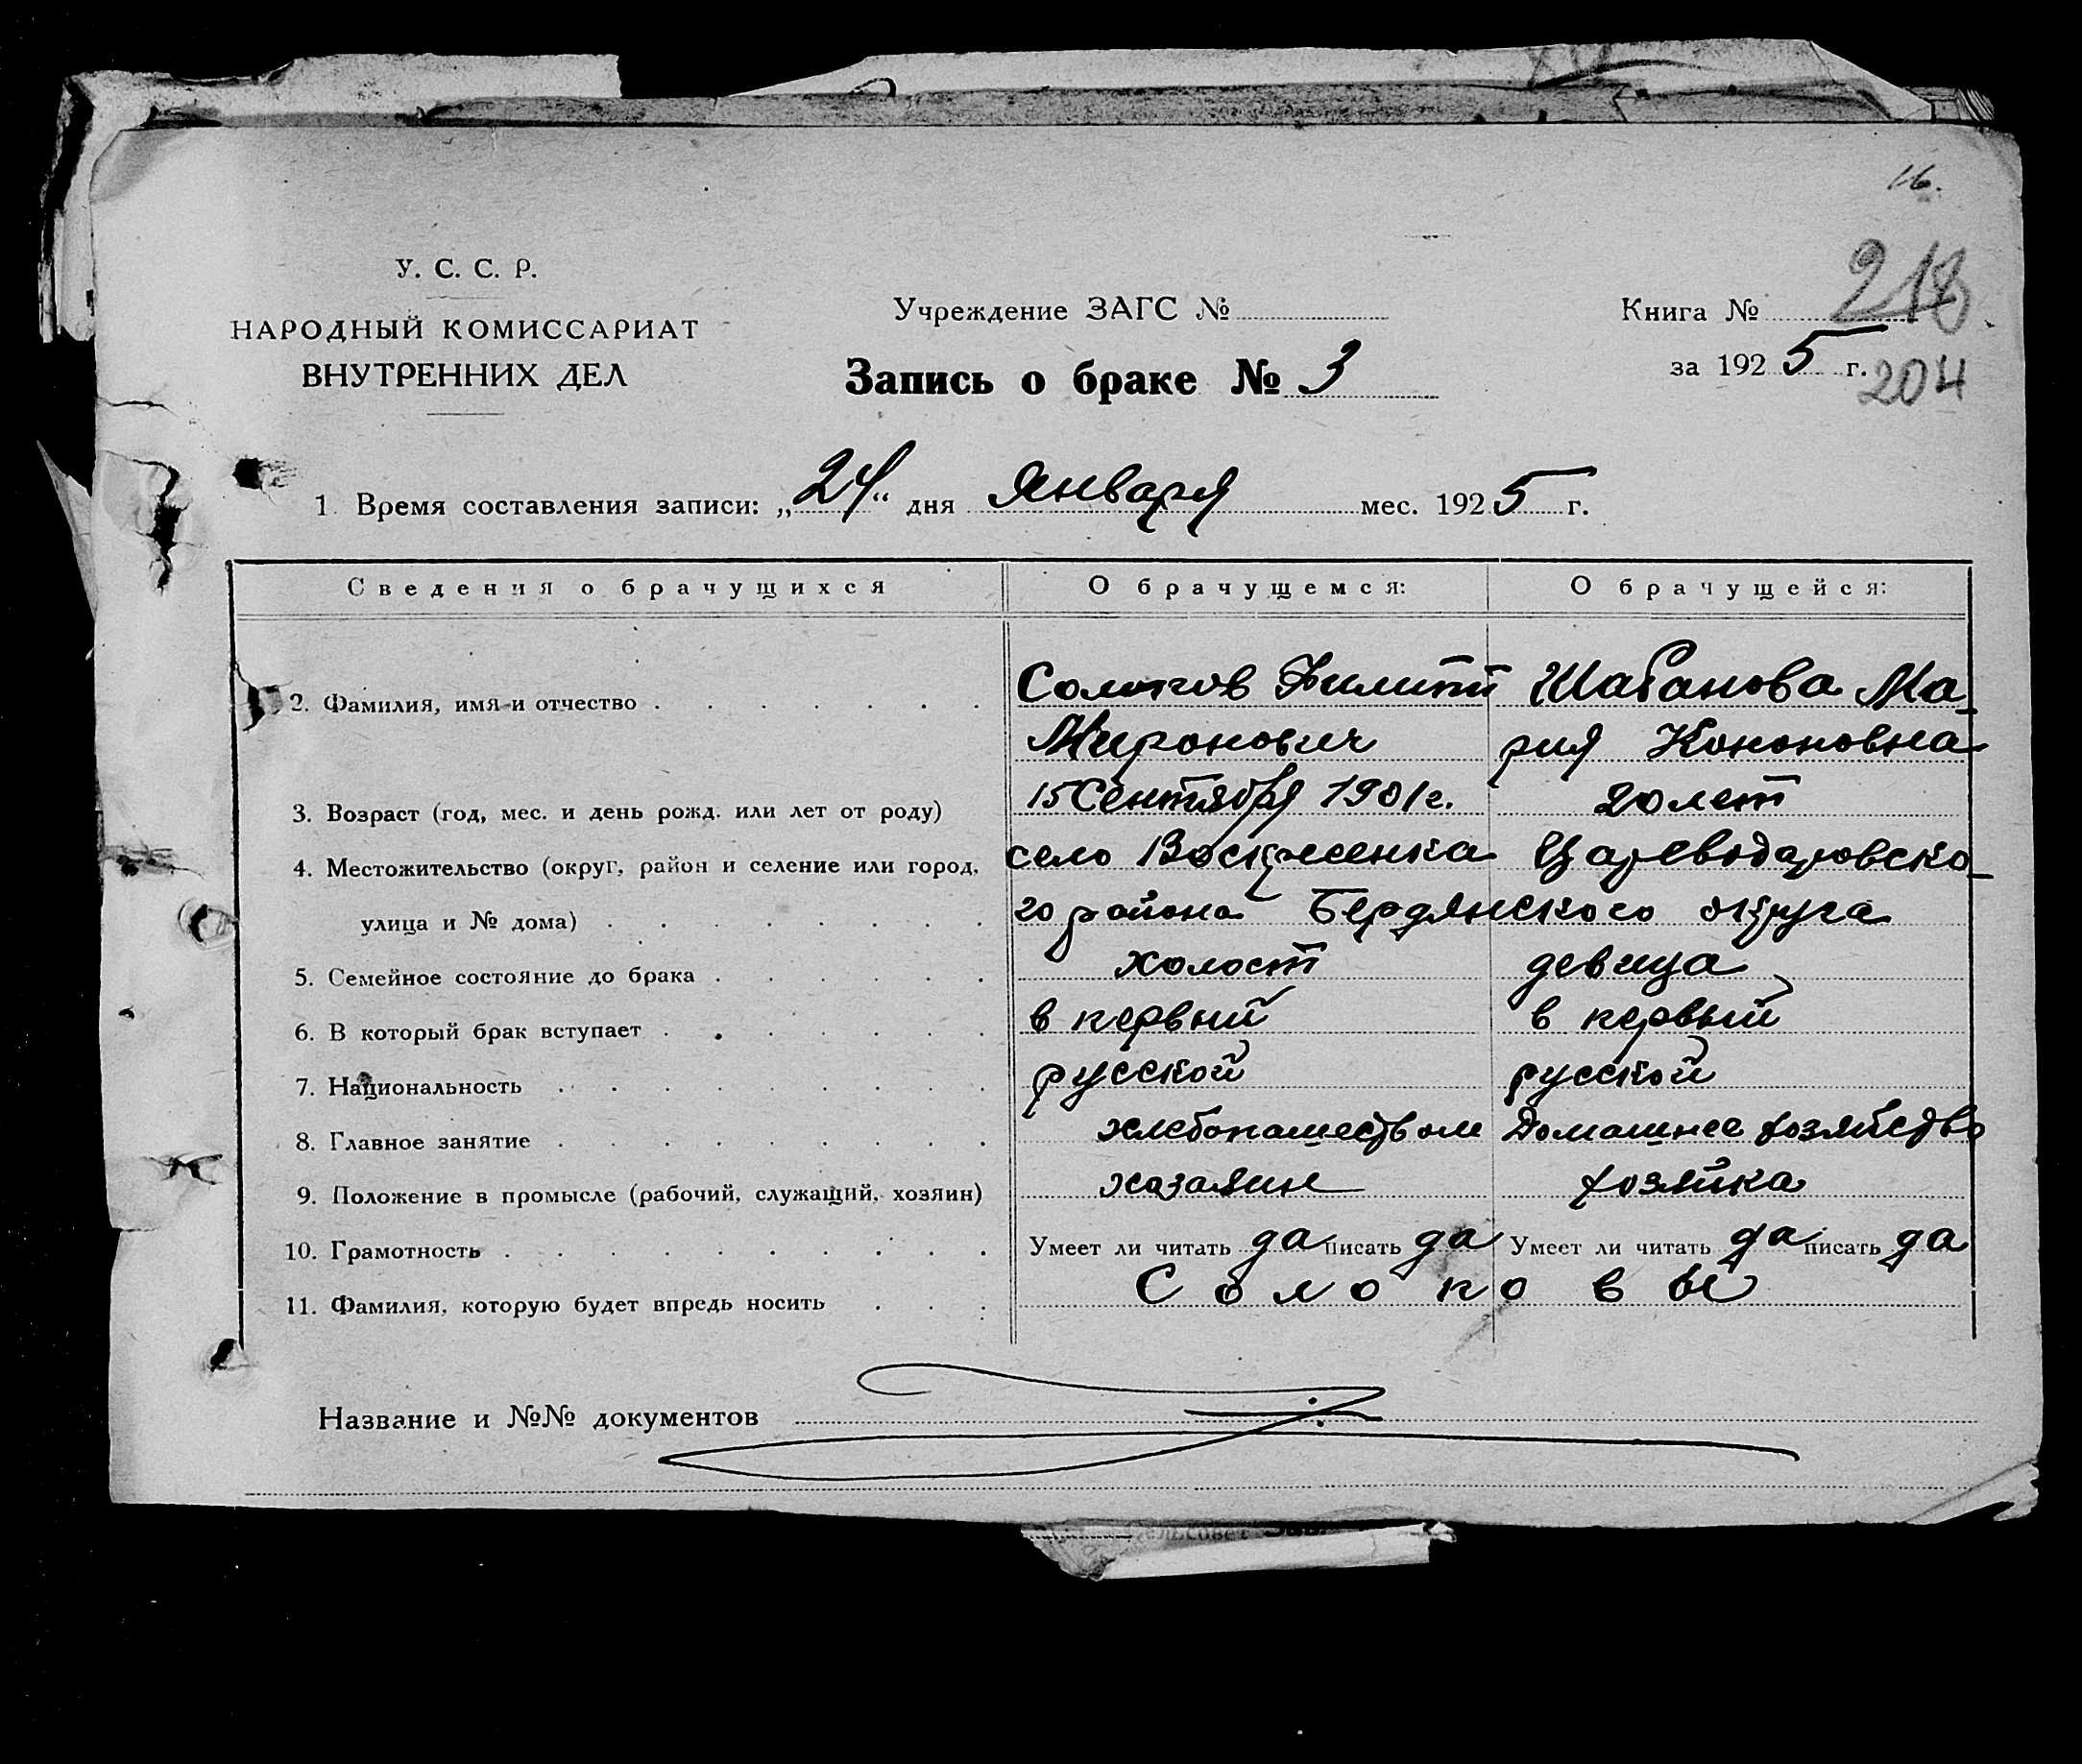 16.
У. С. С. Р.
НАРОДНЫЙ КОМИССАРИАТ
ВНУТРЕННИХ ДЕЛ
Учреждение ЗАГС №
Запись о браке № 3
Книга № 218
за 1925 г.
204
1. Время составления записи: „24“ дня Января мес. 1925 г.
Сведения о брачущихся О брачущемся: О брачущейся:
2. Фамилия, имя и отчество Солопов Филипп Шабанова Ма-
Миронович рия Кононовна
3. Возраст (год, мес. и день рожд. или лет от роду) 15 Сентября 1901 г. 20 лет
4. Местожительство (округ, район и селение или город, село Воскресенка Цареводаровско-
улица и № дома) го района Бердянского округа
5. Семейное состояние до брака холост девица
6. В который брак вступает в первый в первый
7. Национальность русской русской
8. Главное занятие хлебопашеством Домашнее хозяйство
9. Положение в промысле (рабочий, служащий, хозяин) хазаяин хозяйка
10. Грамотность Умеет ли читать да писать да Умеет ли читать да писать да
11. Фамилия, которую будет впредь носить Солоповы
Название и №№ документов